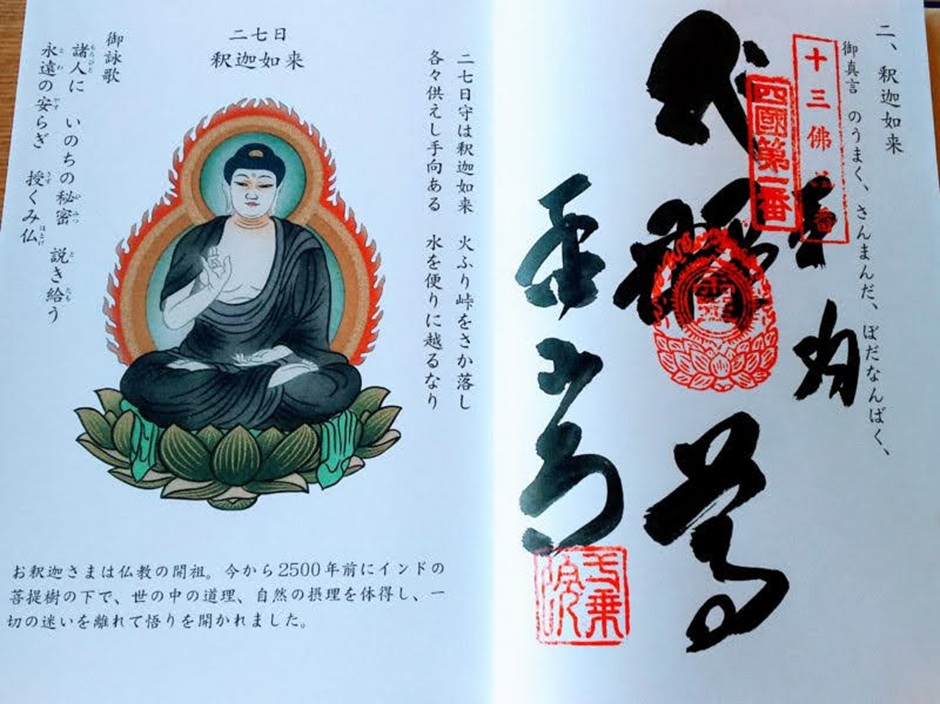 二、釈迦如来
御真言 のうまく、さんまんだ、ぼだなんばく、
十三佛
四國第一番
二七日守は釈迦如来 火ふり峠をさか落し
各々供えし手向ある 水を便りに越るなり
二七日
釈迦如来
御詠歌
諸人に いのちの秘密 説き給う
永遠の安らぎ 授くみ仏
お釈迦さまは仏教の開祖。今から2500年前にインドの
菩提樹の下で、世の中の道理、自然の摂理を体得し、一
切の迷いを離れて悟りを開かれました。